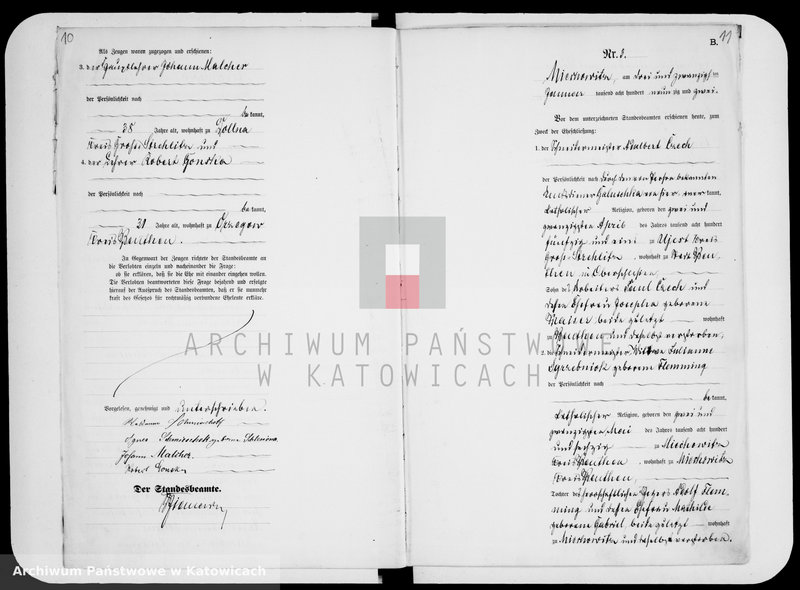 10
Als Zeugen waren zugezogen und erschienen:
3. der Hauptlehrer Johann Malcher
der Persönlichkeit nach
be kannt,
38 Jahre alt, wohnhaft zu Zollna
Kreis Groß Strehlitz und
4. der Lehrer Robert
der Persönlichkeit nach
be kannt,
31 Jahre alt, wohnhaft zu
Kreis Beuthen.
In Gegenwart der Zeugen richtete der Standesbeamte an
die Verlobten einzeln und nacheinander die Frage:
ob sie erklären, daß sie die Ehe mit einander eingehen wollen.
Die Verlobten beantworteten diese Frage bejahend und erfolgte
hierauf der Ausspruch des Standesbeamten, daß er sie nunmehr
kraft des Gesetzes für rechtmäßig verbundene Eheleute erkläre.
Vorgelesen, genehmigt und unterschrieben.
Agnes geborene
Johann Malcher.
Robert
Der Standesbeamte.
B. 11
Nr. 3.
Miechowitz, am drei und zwanzigsten
Januar tausend acht hundert neunzig und zwei.
Vor dem unterzeichneten Standesbeamten erschienen heute, zum
Zweck der Eheschließung:
1. der Schneidermeister Adalbert Czech
der Persönlichkeit nach durch den von Person bekannten
Amtsdiener Galuschka von hier anerkannt,
katholischer Religion, geboren den zwei und
zwanzigsten April des Jahres tausend acht hundert
fünfzig und eins zu Ujest Kreis
Groß-Strehlitz, wohnhaft zu Stadt Beu-
then in Oberschlesien
Sohn des Arbeiters Paul Czech und
dessen Ehefrau Josepha geborene
Kaiser beide zuletzt wohnhaft
zu Beuthen und daselbst verstorben,
2. die Schneidermeister Wittwe Julianna
geborene Flemming
der Persönlichkeit nach
be kannt,
katholischer Religion, geboren den zwei und
zwanzigsten Mai des Jahres tausend acht hundert
und sechzig zu Miechowitz
Kreis Beuthen, wohnhaft zu Miechowitz
Kreis Beuthen,
Tochter des herrschaftlichen Jägers Adolf Flem-
ming und dessen Ehefrau Mathilde
geborene Gabriel, beide zuletzt wohnhaft
zu Miechowitz und daselbst verstorben.
ARCHIWUM PAŃSTWOWE
W KATOWICACH
Archiwum Państwowe w Katowicach